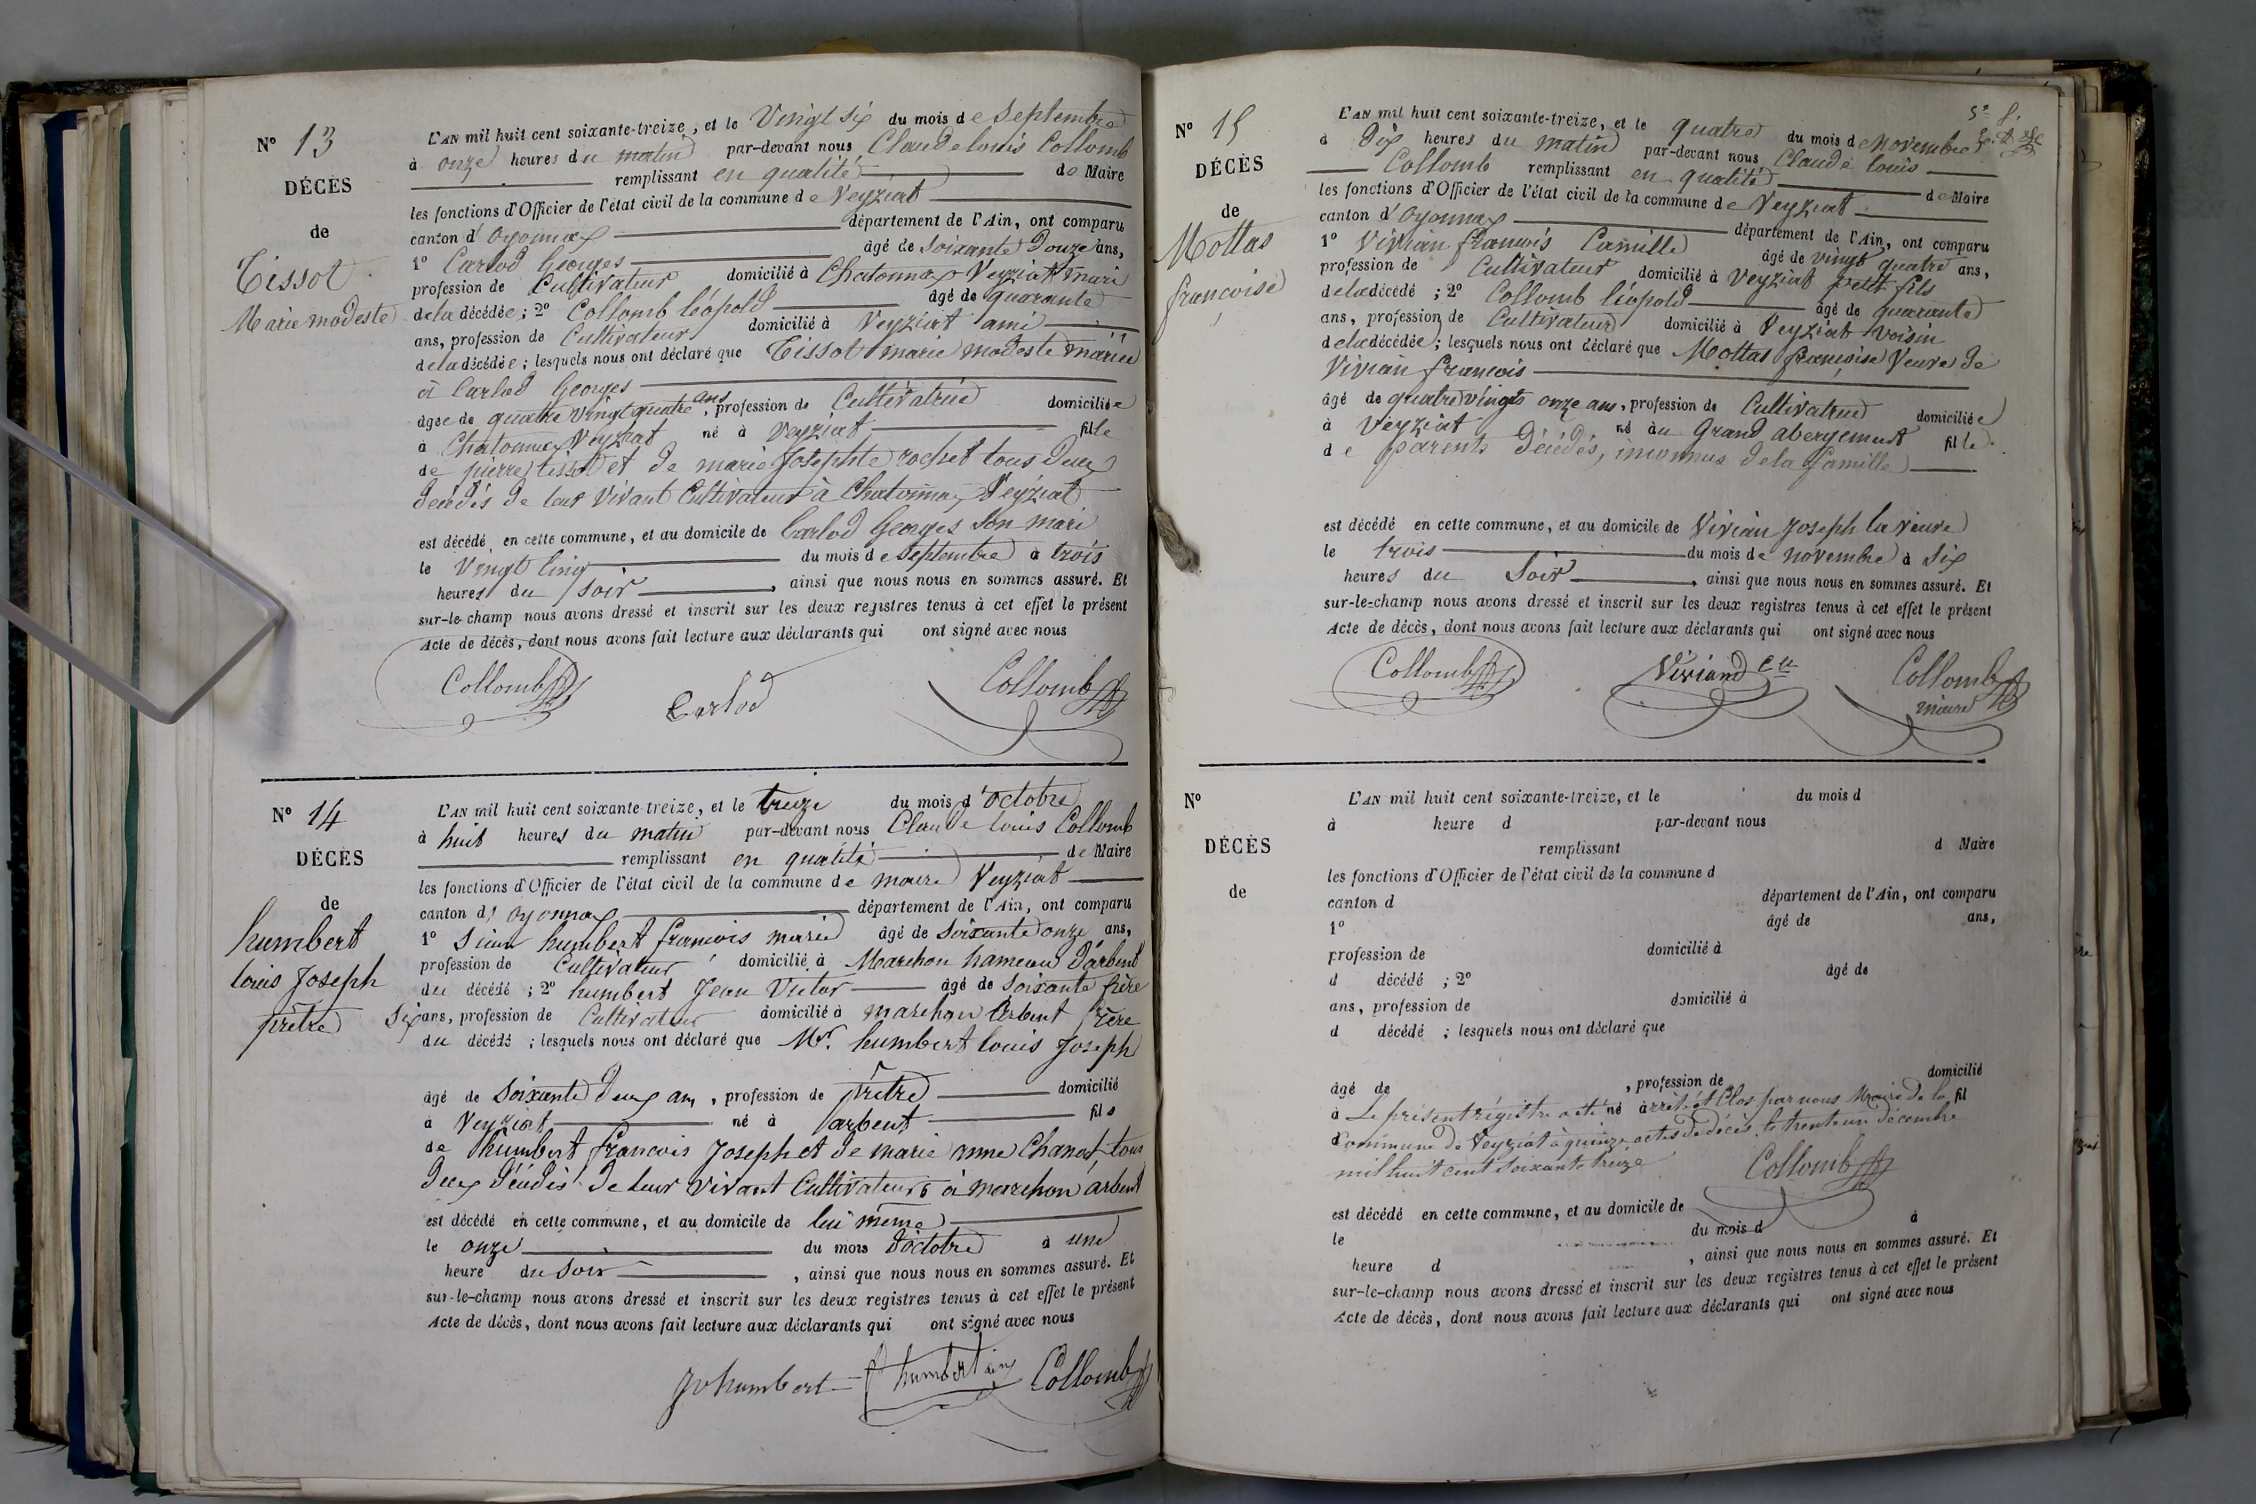 N° 13
DÉCÈS
de
Tissot
Marie modeste
L'AN mil huit cent soixante-treize, et le Vingt six du mois de Septembre
à onze heures du matin par-devant nous Claude louis Collomb
remplissant en qualité de Maire
les fonctions d'Officier de l'état civil de la commune de Veyziat
canton d'oyonnax département de l'Ain, ont comparu
1° Carlod Georges âgé de soixante Douze ans,
profession de Cultivateur domicilié à Chatonnax Veyziat mari
de la décédée; 2° Collomb léopold âgé de quarante
ans, profession de Cultivateur domicilié à Veyziat ami
de la décédée; lesquels nous ont déclaré que Tissot marie modeste mariée
à Carlod Georges
âgée de quatre vingt quatre ans, profession de Cultivatrice domiciliée
à Chatonnax Veyziat né à Veyziat fille
de pierre tissot et de marie Josephte rochet tous deux
décédés de leur vivant Cultivateur à Chatonnax Veyziat
est décédé en cette commune, et au domicile de Carlod Georges son mari
le Vingt cinq du mois de Septembre à trois
heures du soir, ainsi que nous nous en sommes assuré. Et
sur-le-champ nous avons dressé et inscrit sur les deux registres tenus à cet effet le présent
Acte de décès, dont nous avons fait lecture aux déclarants qui ont signé avec nous
Collomb Carlod Collomb
N° 14
DÉCÈS
de
humbert
louis Joseph
prêtre
L'AN mil huit cent soixante-treize, et le treize du mois d'octobre
à huit heures du matin par-devant nous Claude louis Collomb
remplissant en qualité de Maire
les fonctions d'Officier de l'état civil de la commune de maire Veyziat
canton d'oyonnax département de l'Ain, ont comparu
1° Sieur humbert francois marie âgé de soixante onze ans,
profession de Cultivateur domicilié à Marchon hameau d'arbent
du décédé; 2° humbert Jean Victor âgé de soixante frère
six ans, profession de Cultivateur domicilié à marchon Arbent frère
du décédé; lesquels nous ont déclaré que Mr. humbert louis Joseph
âgé de soixante deux ans, profession de prêtre domicilié
à Veyziat né à arbent fils
de humbert francois Joseph et de marie anne Chanet, tous
deux décédés de leur vivant Cultivateurs à marchon arbent
est décédé en cette commune, et au domicile de lui même
le onze du mois d'octobre à une
heure du soir, ainsi que nous nous en sommes assuré. Et
sur-le-champ nous avons dressé et inscrit sur les deux registres tenus à cet effet le présent
Acte de décès, dont nous avons fait lecture aux déclarants qui ont signé avec nous
Jvhumbert humbert Collomb
N° 15
DÉCÈS
de
Mottas
francoise
L'AN mil huit cent soixante-treize, et le quatre du mois de novembre
à dix heures du matin par-devant nous Claude louis
Collomb remplissant en qualité de Maire
les fonctions d'Officier de l'état civil de la commune de Veyziat
canton d'oyonnax département de l'Ain, ont comparu
1° Vivian francois Camille âgé de vingt quatre ans,
profession de Cultivateur domicilié à Veyziat petit fils
de la décédé; 2° Collomb léopold âgé de quarante
ans, profession de Cultivateur domicilié à Veyziat voisin
de la décédée; lesquels nous ont déclaré que Mottas francoise Veuve de
Vivian francois
âgé de quatre vingts onze ans, profession de Cultivatrice domiciliée
à Veyziat né au Grand abergement fille
de parents décédés, inconnus de la famille
est décédé en cette commune, et au domicile de Vivian Joseph la veuve
le trois du mois de novembre à six
heures du Soir, ainsi que nous nous en sommes assuré. Et
sur-le-champ nous avons dressé et inscrit sur les deux registres tenus à cet effet le présent
Acte de décès, dont nous avons fait lecture aux déclarants qui ont signé avec nous
Collomb Viviand Collomb
maire
N°
DÉCÈS
de
L'AN mil huit cent soixante-treize, et le du mois d
à heure d par-devant nous
remplissant d Maire
les fonctions d'Officier de l'état civil de la commune d
canton d département de l'Ain, ont comparu
1° âgé de ans,
profession de domicilié à
d décédé; 2° âgé de
ans, profession de domicilié à
d décédé; lesquels nous ont déclaré que
âgé de , profession de domicilié
à Le présent régistre a été né à arrêté et Clos par nous Maire de la fil
d Commune de Veyziat à quinze actes de décès le trente un décembre
mil huit cent soixante treize Collomb
est décédé en cette commune, et au domicile de
le du mois d à
heure d , ainsi que nous nous en sommes assuré. Et
sur-le-champ nous avons dressé et inscrit sur les deux registres tenus à cet effet le présent
Acte de décès, dont nous avons fait lecture aux déclarants qui ont signé avec nous